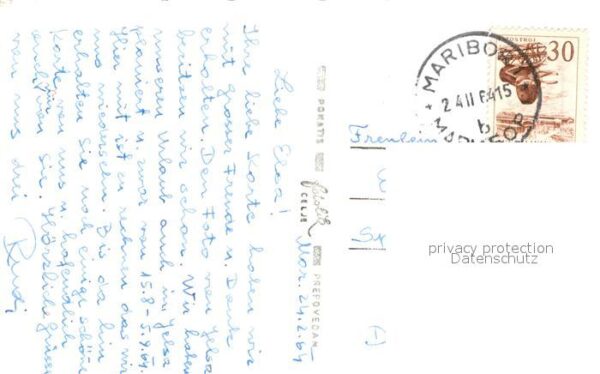 Mar. 24.2.64
Liebe Elsa!
Ihre liebe Karte haben wir
mit grosser Freude u. Dank
erhalten. Den Foto von Jelsa
besitzen wir schon. Wir haben
unseren Urlaub auch in Jelsa
planiert u. zwar von 15.8-5.9.64.
Hier mit ist zu rechnen das wir
uns wiedersehen. Bis da hin
erhalten Sie noch einige schöne
Karten von uns u. hoffendlich
auch von Sie. Herzliche Grüsse
von uns drei
Rudi
POHATIS
CELJE
PREPOVEDAN
MARIBOR
24 II 64 15
b
30
Freulein
privacy protection
Datenschutz